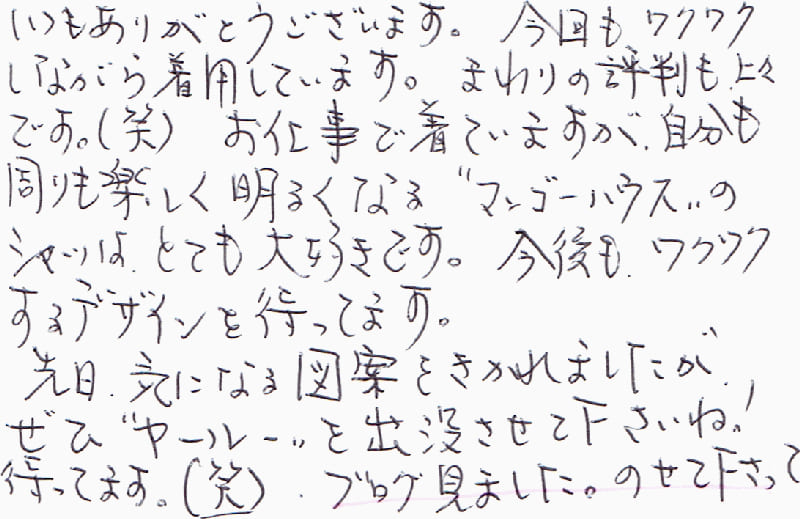 いつもありがとうございます。 今回も ワクワク
しながら着用しています。 まわりの評判も上々
です。(笑) お仕事で着ていますが、自分も
周りも楽しく明るくなる "マンゴーハウス"の
シャツは、とても大好きです。 今後も、ワクワク
するデザインを待ってます。
先日、気になる図案をきかれましたが、
ぜひ "ヤールー"を出没させて下さいね!
待ってます。(笑)、ブログ見ました。のせて下さって